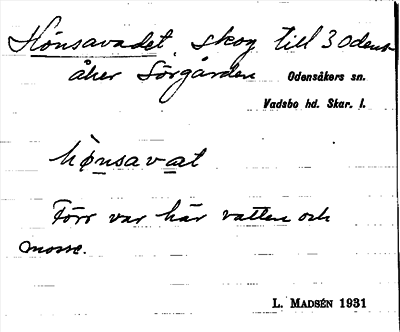 Hönsavadet, skog till 3 Odens-
åker Sörgården Odensåkers sn.
Vadsbo hd. Skar. l.
hønsavat
Förr var här vatten och
mosse.
L. MADSÉN 1931